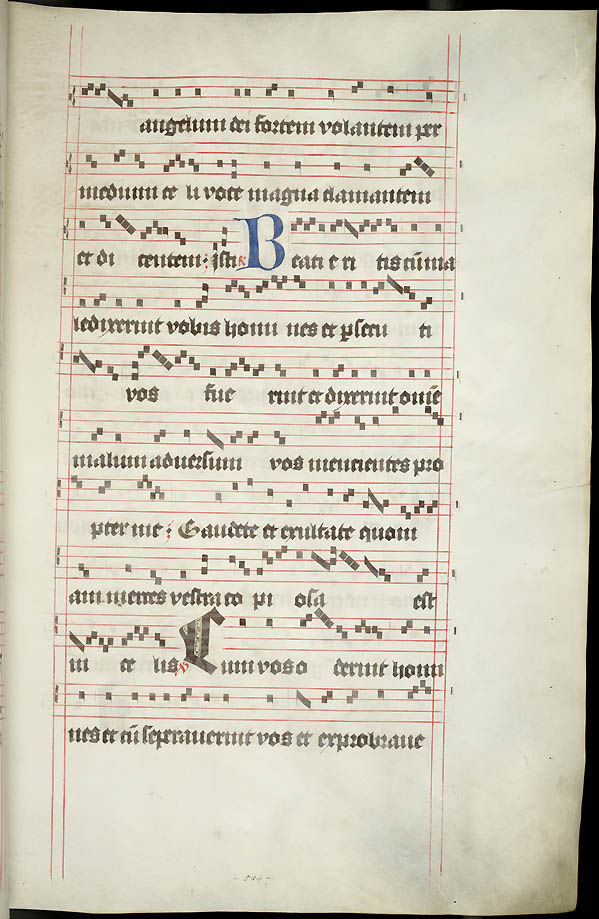 angelum dei fortem volantem per
medium ce li voce magna clamantem
et di centem : isti R Beati e ri tis cū ma
ledixerint vobis homi nes et pſecu ti
vos fue rint et dixerint om̄e
malum adversum vos mencientes pro
pter me : Gaudete et exultate quoni
am merces vestra co pi osa est
in ce lis V Cum vos o derint homi
nes et cū seperaverint vos et exprobrave